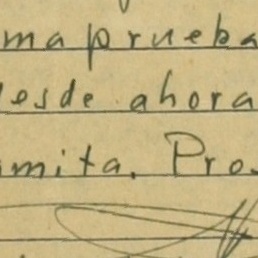 ma prueba
desde ahora
mita. Pro